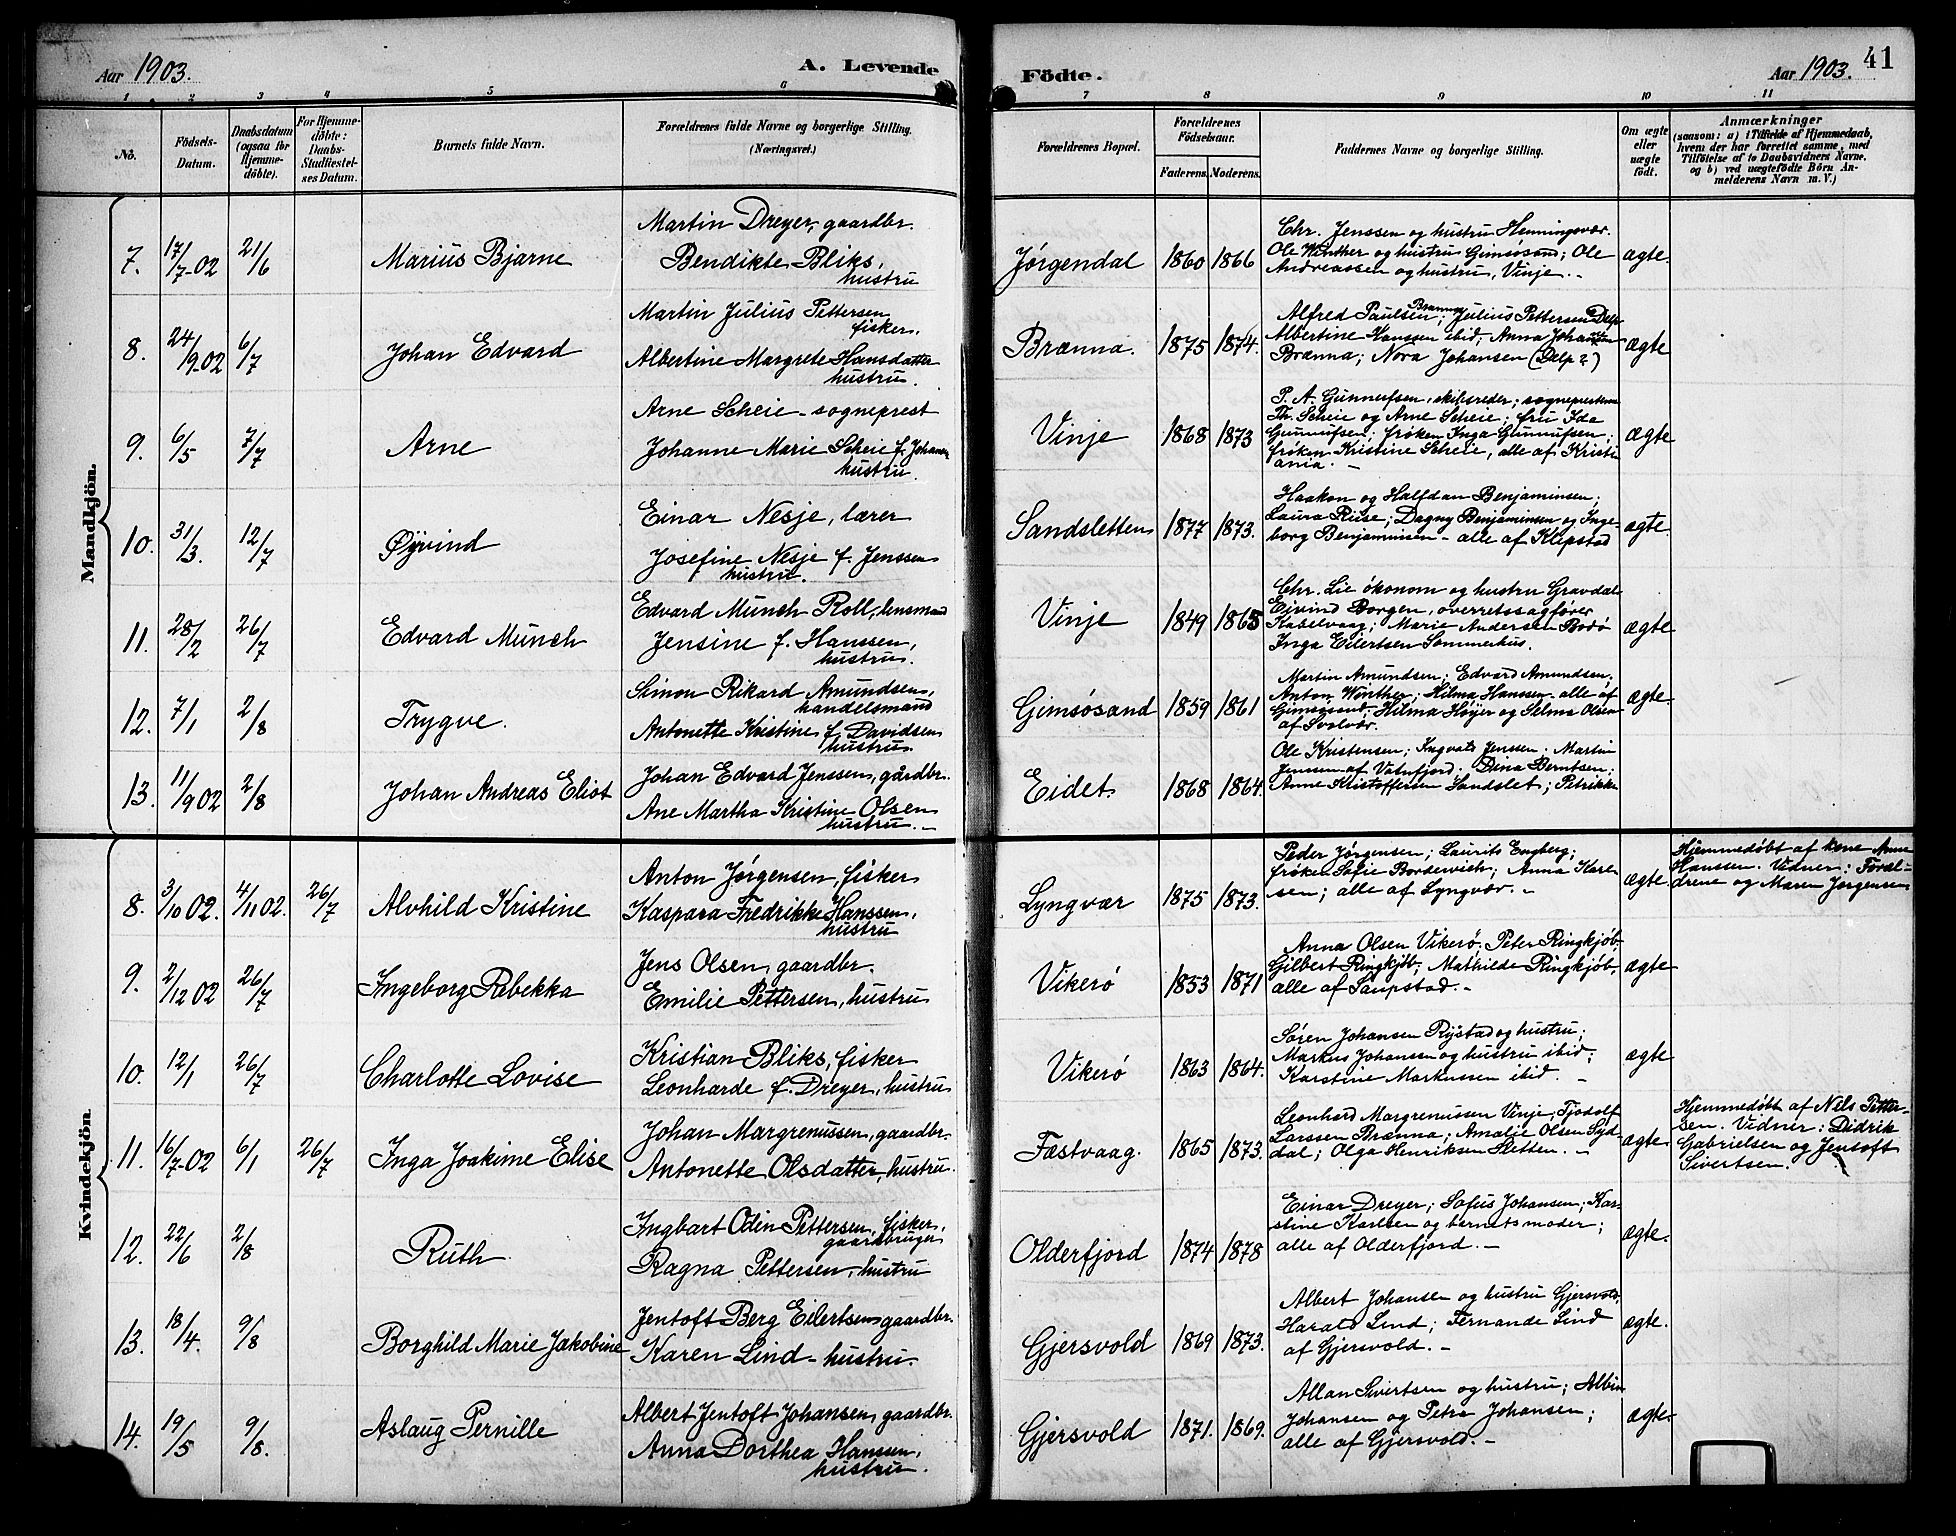 Aar 1903. A. Levende Födte. Aar 1903. 41
1 2 3 4 5 6 7 8 9 10 11
No. Födsels-Datum. Daabsdatum (ogsaa for Hjemmedöbte). For Hjemmedöbte: Daabs-Stadfæstelses Datum. Barnets fulde Navn. Forældrenes fulde Navne og borgerlige Stilling. (Næringsvei.) Forældrenes Bopæl. Forældrenes Födselsaar. Faderens. Moderens. Faddernes Navne og borgerlige Stilling. Om ægte eller uægte födt. Anmærkninger
(saasom: a) i Tilfælde af Hjemmedaab, hvem der har forrettet samme, med Tilföielse af to Daabsvidners Navne, og b) ved uægtefödte Börn Anmelderens Navn m. V.)
Mandkjön.
7. 17/7-02 21/6 Marius Bjarne
Martin Dreyer, gaardbr.
Bendikte Bliks,
hustru
Jørgendal 1860 1866
Chr. Jenssen og hustru Henningsvær.
Ole Winther og hustru Gimsøsand; Ole
Andreassen og hustru, Vinje. -
ægte.
8. 24/9-02 6/7 Johan Edvard
Martin Julius Pettersen
fisker.
Albertine Margrete Hansdatter
hustru.
Brænna. 1875 1874.
Brænna
Alfred Paulsen; Julius Pettersen Delp
Albertine Hanssen ibid; Anna Johansen
Brænna; Nora Johansen (Delp?)
ægte
9. 6/5 7/7 Arne
Arne Scheie - sogneprest
Johanne Marie Scheie f. Johansen
hustru.
Vinje 1868 1873
P. A. Gunnufsen, skibsreder; sogneprestene
Th. Scheie og Arne Scheie; fru Ida
Gunnufsen; frøken Inga Gunnufsen;
frøken Kristine Scheie, alle af Kristi
ania. -
ægte
10. 31/3. 12/7 Øyvind
Einar Nesje, lærer
Josefine Nesje f. Jenssen
hustru.
Sandsletten 1877 1873.
Haakon og Halfdan Benjaminsen;
Laura Riise; Dagny Benjaminsen og Inge-
borg Benjaminsen - alle af Klepstad
ægte.
11. 28/2 26/7 Edvard Münch
Edvard Münch Roll, lensmand
Jensine f. Hanssen,
hustru.
Vinje 1849 1865
Chr. Lie økonom og hustru Gravdal
Ejvind Borgen, overretssagfører
Kabelvaag; Marie Andersen Bodø
Inga Eilertsen Sommerhus.
ægte
12. 7/1 2/8 Trygve.
Simon Rikard Amundsen,
handelsmand
Antonette Kristine f. Davidsen
hustru
Gimsøsand 1859 1861
Martin Amundsen; Edvard Amundsen;
Anton Winther; Hilma Hanssen - alle af
Gimsøsand. Hilma Høyer og Selma Olsen
af Svolvær.
ægte.
13. 11/9 02 2/8 Johan Andreas Eliot
Johan Edvard Jenssen, gårdbr.
Ane Martha Kristine Olsen
hustru. -
Eidet. 1868 1864.
Ole Kristensen; Ingvald Jenssen. Martin
Jenssen af Vatnfjord. Dina Berntsen;
Anne Kristoffersen Sandslet; Petrikke
Kvindekjön
8. 3/10 02. 4/11 02. 26/7 Alvhild Kristine
Anton Jørgensen, fisker
Kaspara Fredrikke Hanssen,
hustru
Lyngvær 1875 1873.
Peder Jørgensen; Laurits Engberg;
frøken Sofie Bordevich; Anna Hare-
sen; alle af Lyngvær. -
ægte
Hjemmedøbt af kone Anne
Hanssen. Vidner: Foræl-
drene og Maren Jørgensen
9. 2/12 02 26/7 Ingeborg Rebekka
Jens Olsen, gaardbr.
Emilie Pettersen, hustru
Vikerø 1853 1871
Anna Olsen Vikerø. Peter Ringkjøb;
Gilbert Ringkjøb; Mathilde Ringkjøb,
alle af Saupstad. -
ægte
10. 12/1 26/7 Charlotte Lovise
Kristian Bliks, fisker
Leonharde f. Dreyer, hustru
Vikerø 1863 1864.
Søren Johansen Rystad og hustru;
Markus Johansen og hustru ibid;
Karstine Markussen ibid. -
ægte
11. 16/7-02 6/1 26/7 Inga Joakime Elise
Johan Margrenussen, gaardbr.
Antonette Olsdatter, hustru.
Fæstvaag. 1865 1873.
Leonhard Margrenussen Vinje; Tjodolf
Larssen Brænna; Amalie Olsen Syd-
dal; Olga Henriksen Sletten. -
ægte
Hjemmedøbt af Nels Petter-
sen. Vidner: Didrik
Gabrielsen og Jentoft
Sivertsen.
12. 22/6 2/8 Ruth
Ingbart Odin Pettersen, fisker,
gaardbruger
Ragna Pettersen, hustru
Olderfjord 1874 1878
Einar Dreyer; Sofus Johansen; Kar-
stine Karlsen og barnets moder;
alle af Olderfjord. -
ægte.
13. 18/4. 9/8 Borghild Marie Jakobine
Jentoft Berg Eilertsen gaardbr.
Karen Lind - hustru.
Gjersvold 1869 1873.
Albert Johansen og hustru Gjersvold,
Harald Lind; Fernande Lind
af Gjersvold. -
ægte.
14. 19/5 9/8. Aslaug Pernille
Albert Jentoft Johansen, gaardbr.
Anna Dorthea Hanssen,
hustru.
Gjersvold 1871. 1869.
Allan Sivertsen og hustru; Albin
Johansen og Petra Johansen;
alle af Gjersvold. -
ægte